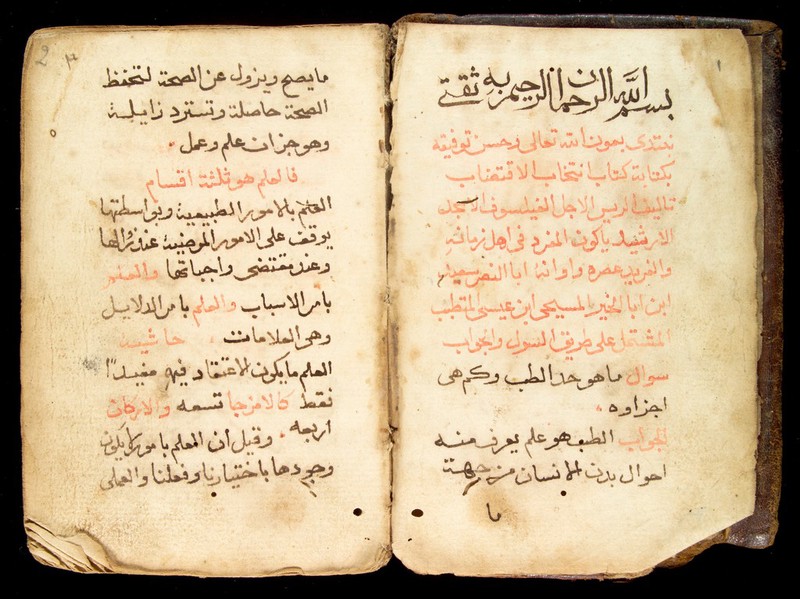 بسم الله الرحمن الرحيم وبه ثقتي
نبتدي بعون الله تعالى وحسن توفيقه
بكتابة كتاب انتخاب الاقتضاب
تاليف الريس الاجل الفيلسوف الامجد
المفرد في اهل زمانه
والفريد عصره واوانه ابا النصر سعيد
ابن ابا الخير المسيحي ابن عيسى المتطبب
المشتمل على طريق السول والجواب
سوال ما هو حد الطب وكم هي
اجزاوه
الجواب الطب هو علم يعرف منه
احوال بدن الانسان من جهة
ما
1
2
ما يصح ويزول عن الصحة لتحفظ
الصحة حاصلة وتسترد زايلة
وهو جزان علم وعمل
فالعلم هو ثلثة اقسام
العلم بالامور الطبيعية وبواسطتها
يوقف على الامور المرضية عند زوالها
وعند مقتضى واجباتها والعلم
بامر الاسباب والعلم بامر الدلايل
وهي العلامات حاشية
العلم ما يكون الاعتقاد فيه مفيدا
فقط كالامزجا تسعه والاركان
اربعه وقيل ان العلم بامور لا يكون
وجودها باختيارنا وفعلنا والعملي